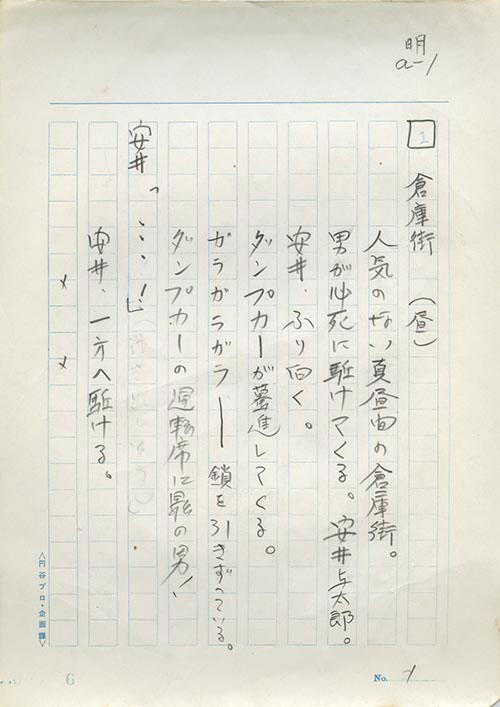 明
a-1
1 倉庫街 (昼)
人気のない真昼間の倉庫街。
男が必死に駈けてくる。安井与太郎。
安井、ふり向く。
ダンプカーが驀進してくる。
ガラガラガラ── 鎖を引きずっている。
ダンプカーの運転席に影の男!
安井「・・・!」
安井、一方へ駈ける。
× ×
<円谷プロ・企画課>
6
No. 1